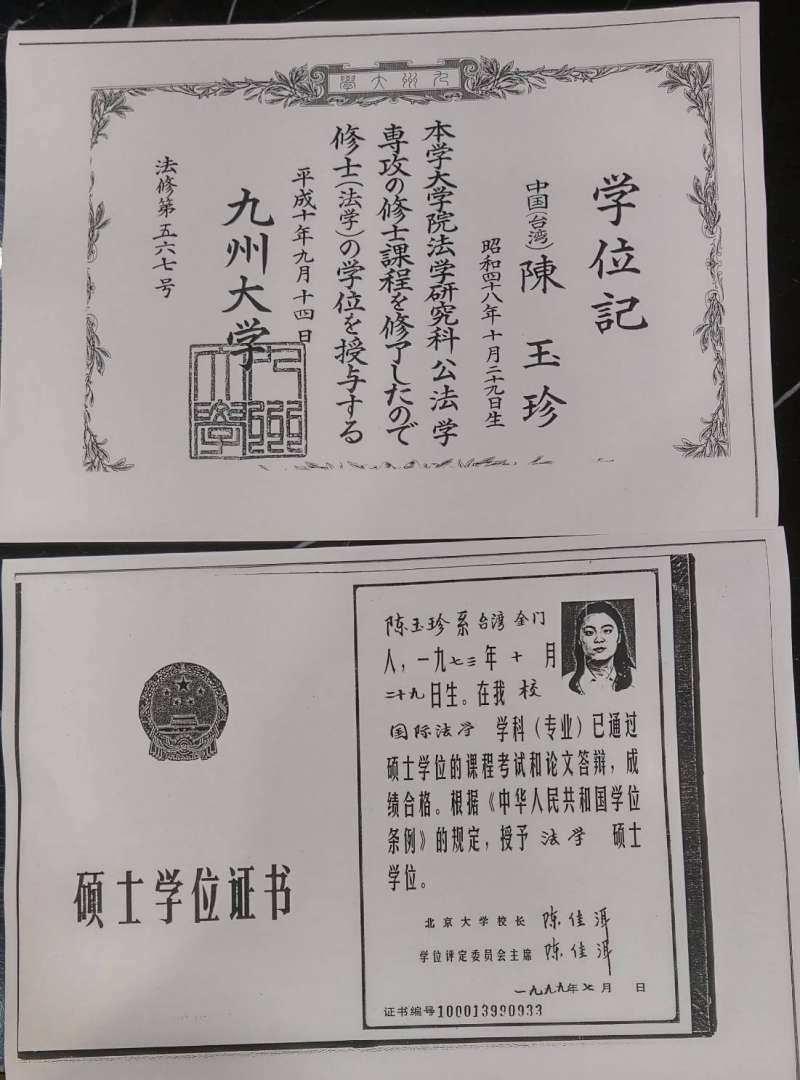 學大州九
学位記
中国(台湾) 陳玉珍
昭和四十八年十月二十九日生
本学大学院法学研究科公法学
専攻の修士課程を修了したので
修士(法学)の学位を授与する
平成十年九月十四日
九州大学
法修第五六七号
硕士学位证书
陈玉珍系台湾金门
人,一九七三年十月
二十九日生。在我校
国际法学 学科(专业)已通过
硕士学位的课程考试和论文答辩,成
绩合格。根据《中华人民共和国学位
条例》的规定,授予 法学 硕士
学位。
北京大学校长 陈佳洱
学位评定委员会主席 陈佳洱
一九九九年七月 日
证书编号100013990933